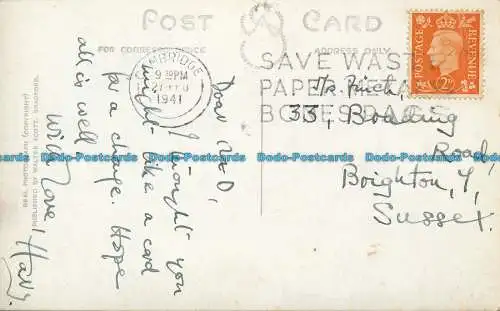 POST CARD
FOR CORRESPONDENCE
ADDRESS ONLY
CAMBRIDGE
9 PM
1941
SAVE WASTE
PAPER
BONES
POSTAGE
REVENUE
Dear
I thought you
might like a card
for a change. Hope
all is well
With love,
Harry.
33,
Road,
Brighton, 7,
Sussex.
REAL PHOTOGRAPH (COPYRIGHT)
PUBLISHED BY WALTER SCOTT, BRADFORD.
Dodo-Postcards Dodo-Postcards Dodo-Postcards Dodo-Postcards Dodo-Postcards